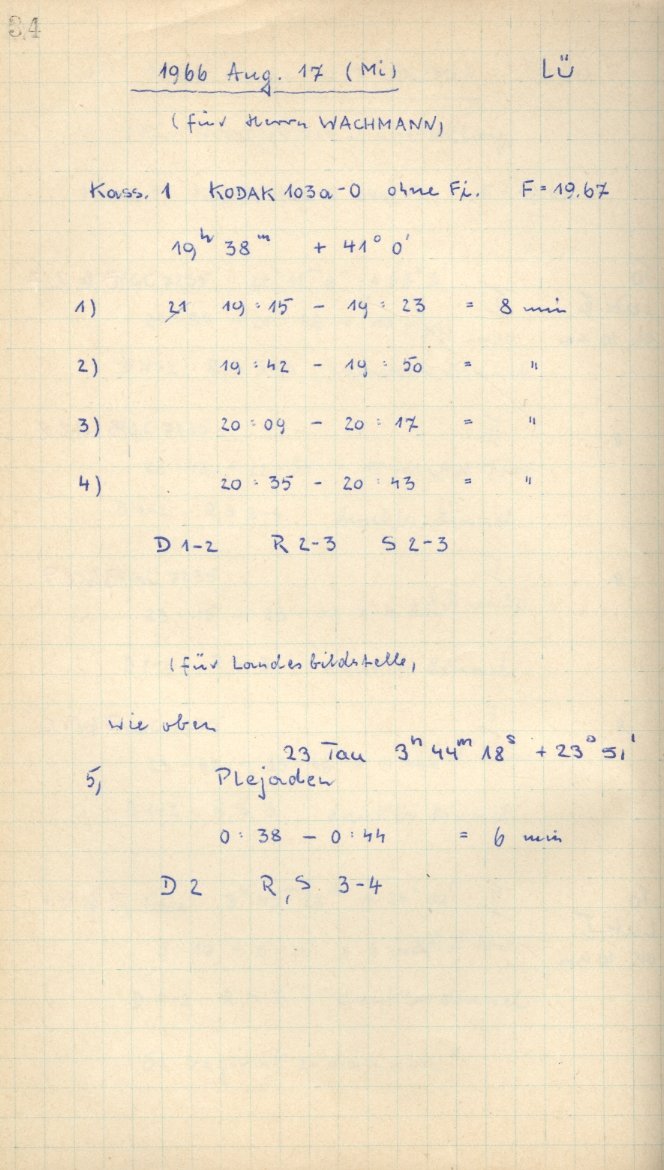 34
1966 Aug. 17 (Mi) LÜ
(für Herrn WACHMANN)
Kass. 1 KODAK 103a-O ohne Fi. F = 19.67
19ʰ 38ᵐ + 41° 0'
1) 21 19:15 - 19:23 = 8 min
2) 19:42 - 19:50 = "
3) 20:09 - 20:17 = "
4) 20:35 - 20:43 = "
D 1-2 R 2-3 S 2-3
(für Landesbildstelle)
wie oben
23 Tau 3ʰ 44ᵐ 18ˢ + 23° 51'
5) Plejaden
0:38 - 0:44 = 6 min
D 2 R, S 3-4